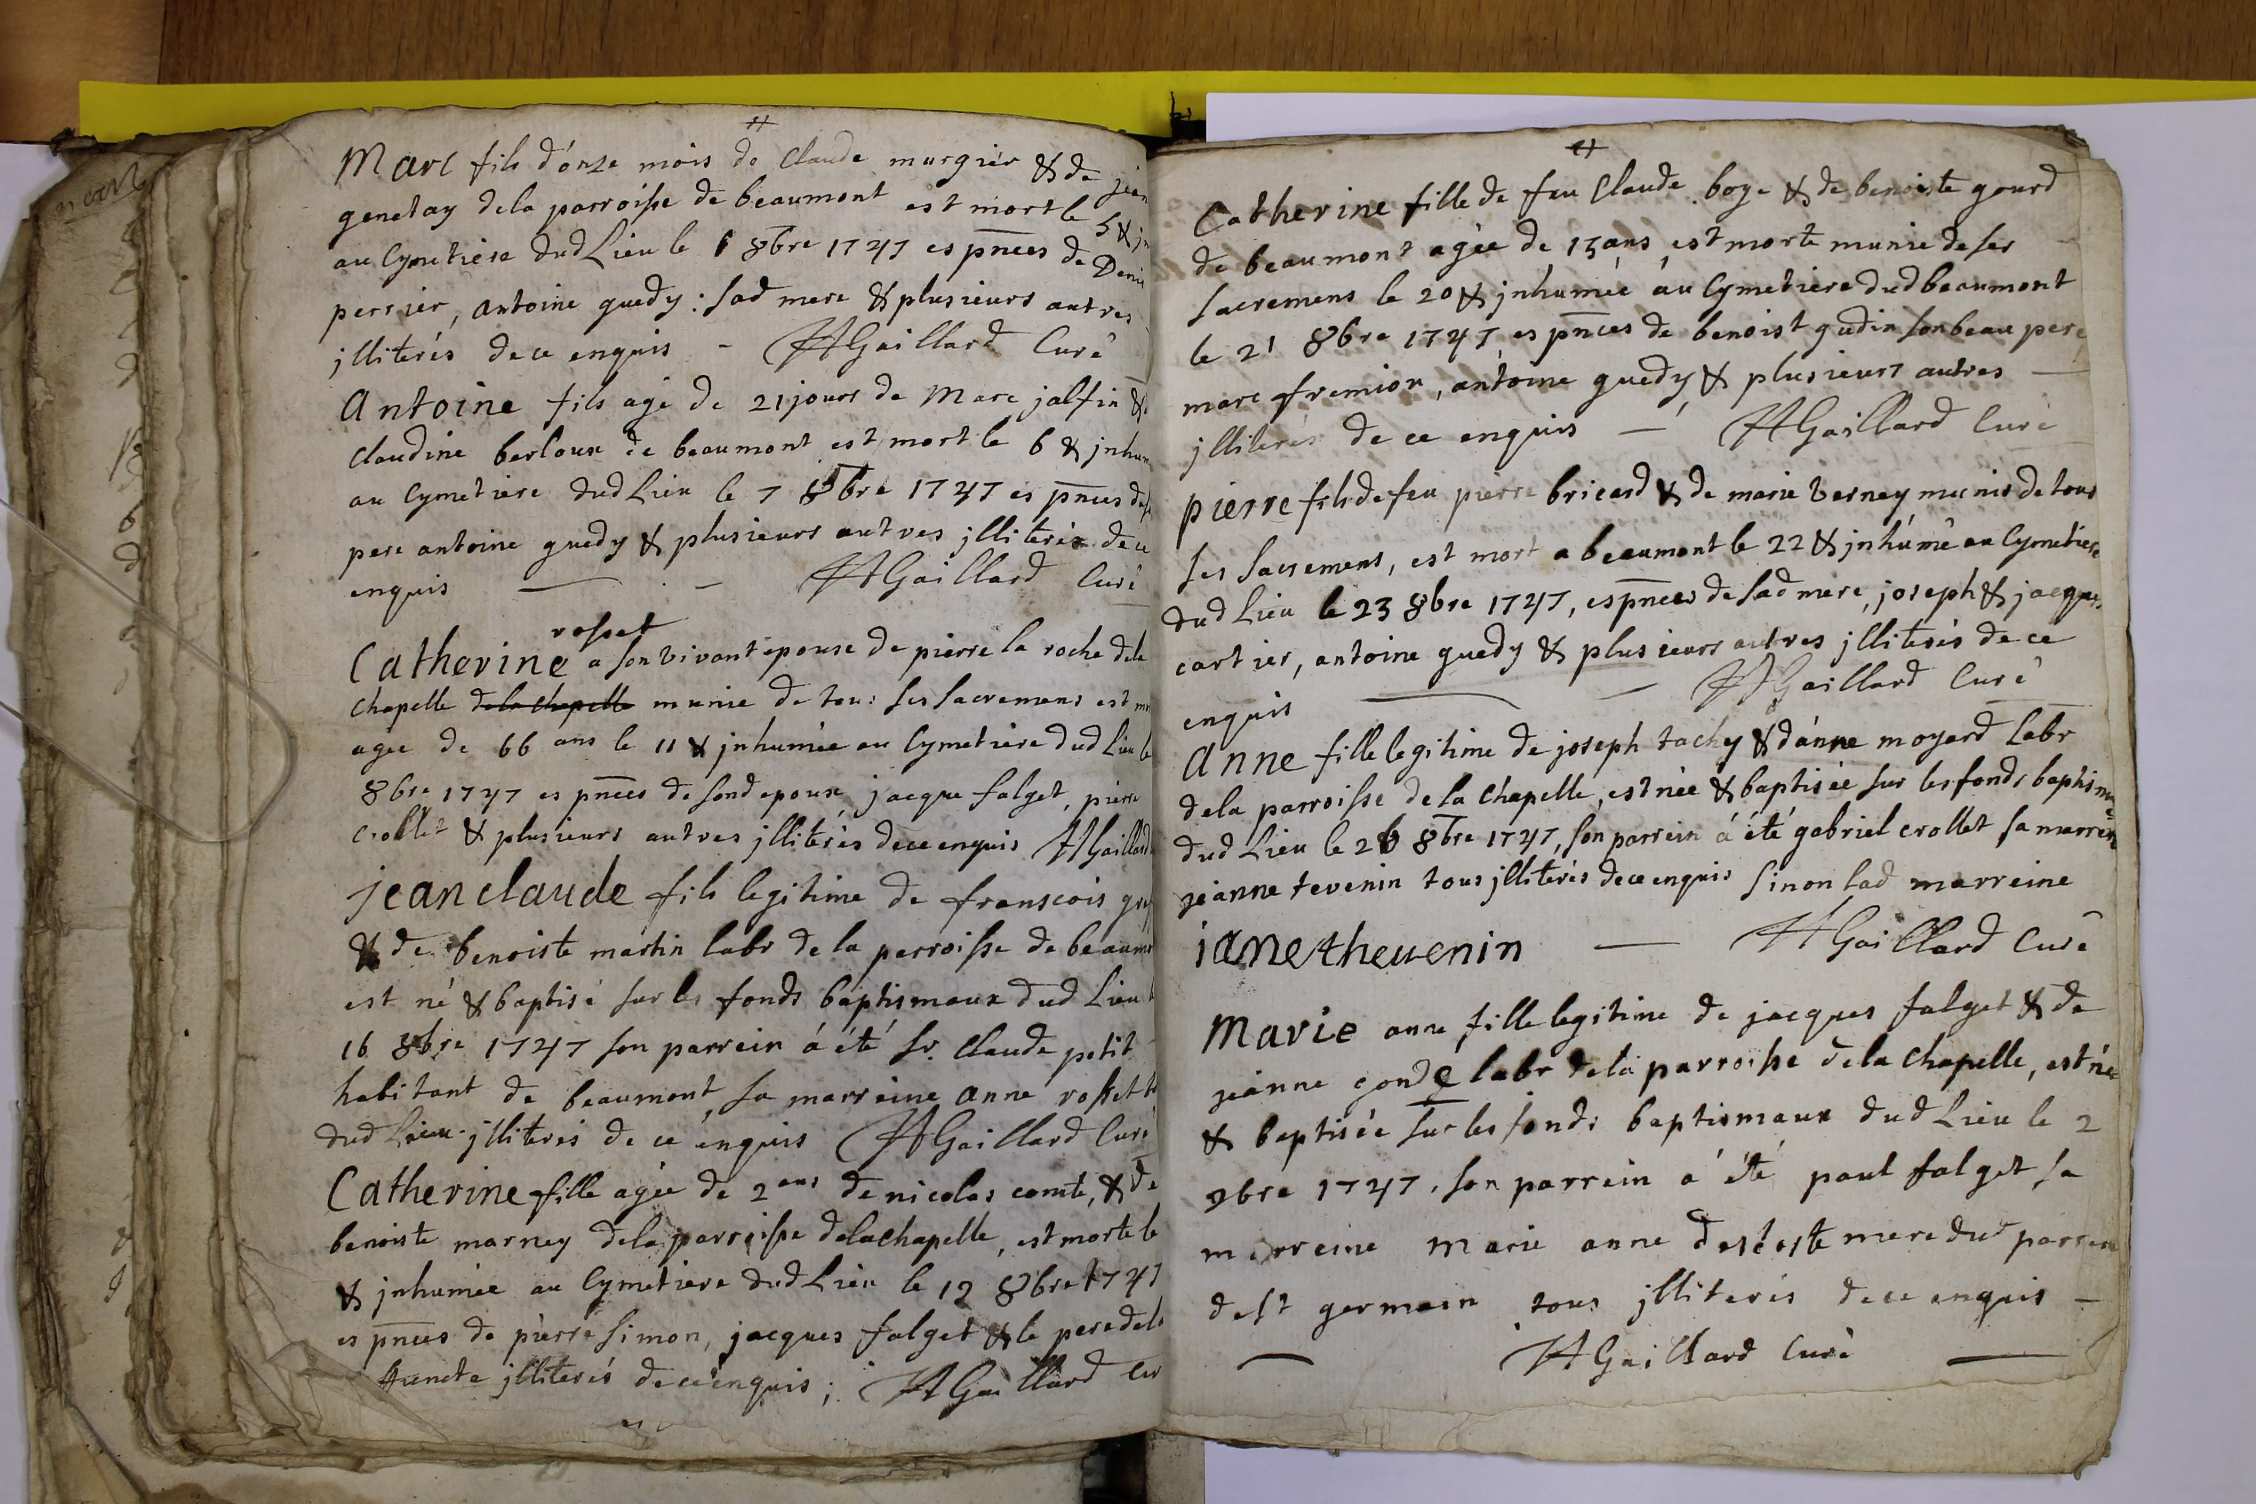 Marc fils d'onze mois de Claude murgier & de jean
genetay dela parroisse de beaumont est mort le 5 & jn
au Cymetiere dud Lieu le 6 8bre 1747 es pnces de Deni
perrier, antoine guedy : sad mere & plusieurs autres
jlliterés de ce enquis - Gaillard Curé
Antoine fils agé de 21 jours de Marc jalfin &
Claudine berloux de beaumont est mort le 6 & jnhum
au Cymetiere dud Lieu le 7 8bre 1747 es pnces de
pere antoine guedy & plusieurs autres jlliterés de ce
enquis - Gaillard Curé
rosset
Catherine a son vivant epouse de pierre la roche dela
chapelle dela chapelle munie de tous ses sacremens est
agée de 66 ans le 11 & jnhumée au Cymetiere dud Lieu le
8bre 1747 es pnces de sond epoux, jacque falget, pierre
crollet & plusieurs autres jlliterés de ce enquis Gaillard
jean claude fils legitime de franscois
& de benoiste martin labr de la parroisse de beaum
est né & baptisé sur les fonds baptismaux dud Lieu
16 8bre 1747 son parrein á été sr. Claude petit
habitant de beaumont, sa marreine anne rosset
dud Lieu jlliterés de ce enquis Gaillard Curé
Catherine fille agée de 2 ans de nicolas comte, & de
benoiste marney dela parroisse dela chapelle, est morte le
& jnhumée au Cymetiere dud Lieu le 12 8bre 1747
es pnces de pierre simon, jacques falget & le pere dela
jlliterés de ce enquis ; Gaillard Cur
Catherine fille de feu Claude boye & de benoiste gourd
de beaumont agée de 15 ans, est morte munie de ses
sacremens le 20 & jnhumée áu Cymetiere dud beaumont
le 21 8bre 1747 es pnces de benoist gudin son beau pere
marc fremion, antoine guedy, & plusieurs autres —
jlliterés de ce enquis — Gaillard Curé
pierre fils de feu pierre bricard & de marie verney munis de tous
ses sacremens, est mort a beaumont le 22 & jnhumé au Cymetiere
dud Lieu le 23 8bre 1747, es pnces de sad mere, joseph & jacques
cartier, antoine guedy & plusieurs autres jlliterés de ce
enquis — Gaillard Curé
Anne fille legitime de joseph tachy & d'anne moyard Labr
dela parroisse de la Chapelle, est née & baptisée sur les fonds baptismaux
dud Lieu le 26 8bre 1747, son parrein á été gabriel crollet sa marrein
jeanne tevenin tous jlliterés de ce enquis sinon lad marreine
iane theuenin — Gaillard Curé
Marie anne fille legitime de jacques falget & de
jeanne condé labr dela parroisse dela Chapelle, est née
& baptisée sur les fonds baptismaux dud Lieu le 2
9bre 1747, son parrein á été paul falget, sa
marreine Marie anne mere dud parrein
de st germain tous jlliterés de ce enquis —
Gaillard Curé —